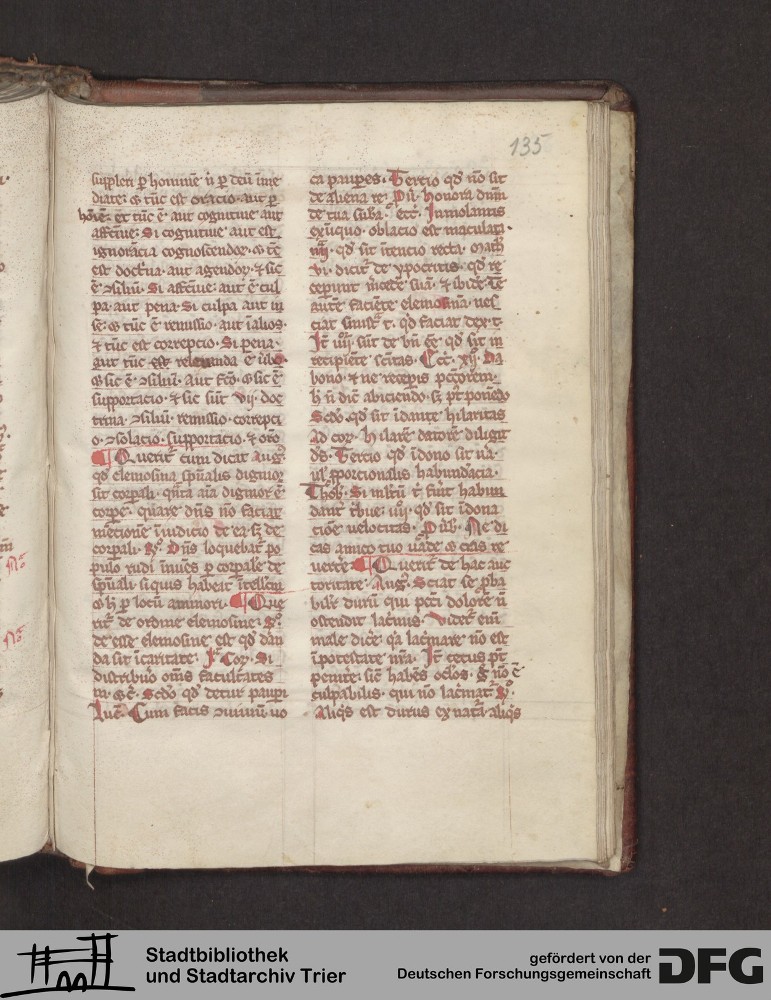 135
suppleri ꝑ hominē ú ꝑ deū īme
diate: ⁊ tūc est oracio. aut ꝑ
hōiē: et tūc ē aut cognitiue aut
affctiue: Si cognitiue aut est
ignorācia cognoscendoꝝ. ⁊ tē
est doct̄ina. aut agendoꝝ. ⁊ sic
ē ꝯsiliū. Si affctiue: aut ē cul
pa. aut pena. Si culpa aut in
se: ⁊ tūc ē remissio. aut ī alios.
⁊ tūc est correpcio. Si pena.
aut tūc est releuanda
⁊ sic ē ꝯsiliū. Aut fcō. ⁊ sic ē
supportacio. ⁊ sic sūt vij. doc
trina. ꝯsiliū. remissio. correpci
o. ꝯsolacio. supportacio. ⁊ orō
¶ Querit̄ cum dicat Aug.
qd̄ elemosina sp̄ualis dignior
sit corꝑali. qn̄ta aīa dignior ē
corꝑe. quare dn̄s nō faciat
mēcionē ī iudicio de ea. sꝫ de
corꝑali. R̄. Dn̄s loquebat᷑ po
pulo rudi
sp̄uali siquis habeat ītellcm
ꝑ locū a minori. ¶ Que
rit̄ de ordine elemosine. R̄.
de esse elemosine est qd̄ dan
da sit ī caritate. Iª Cor. Si
distribuo om̄s facultates
m. ⁊c̄. Scdō qd̄ detur paupi
Luc̄. Cum facis ꝯuiuiū uo
ca pauꝑes. Tercio qd̄ nō sit
de aliena re. Pū. Honora dn̄m
de tua suba. Ecc̄. Immolantis
ex iniquo. oblacio est maculata.
iiij. qd̄ sit ītencio recta. Math̄
vi. dicit̄ de ypocritis. qd̄ re
ceperunt m̄cedē suā. ⁊ ibidē. Te
autē faciente elemosinā. nes
ciat sinistᵃ t. qd̄ faciat dex. t.
It̄ iiij. sūt de bn̄ ēē. qd̄ sit in
recipiēte scītas. Ecc̄. xij. Da
bono. ⁊ ne receꝑis pccōrem.
h̄ n̄ dic̄ abiciendo. sꝫ p̄t ponēdo
Scdō. qd̄ sit ī dante hilaritas
Ad cor. hilarē datorē diligit
ds̄. Tercio qd̄ ī dono sit ūa.
ul̄ ꝓporcionalis habundācia.
Thob. Si multū t̄ fuit habun
dant̄ t̄bue. iiij. qd̄ sit ī dona
cōne velocitas. Pūb. Ne di
cas amico tuo uade ⁊ cras re
uerte ¶ Querit̄ de hac auc
toritate. Aug. Sciat se ꝓba
bilit̄ durū qui pccī dolorē n̄
ostendit lac̄mis. Videt̄ enī
male dicē. qa lac̄mare nō est
ī potestate nr̄a. It̄ cecus p̄t
penitē. sicut habēs oclos. g̊ nō ē
culpabilis. qui nō lac̄mat̄. R̄.
Aliqͥs est durus ex natᵃ. aliqͥs
Stadtbibliothek
und Stadtarchiv Trier
gefördert von der
Deutschen Forschungsgemeinschaft
DFG